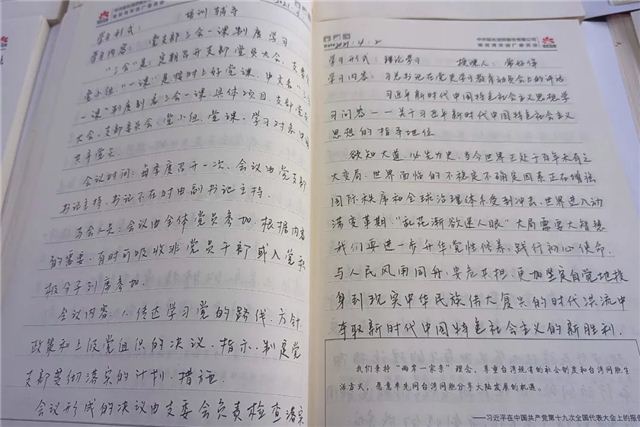 学习形式: 培训辅导
学习内容: 党支部三会一课制度学习
"三会"是定期召开支部党员大会、支委会
党小组,"一课"是按时上好党课。
一课"制度到底三会一课具体项目 支部党员
大会、支部委员会、党小组、党课、学习对象
共享党员
会议时间:每季度召开一次,会议由党支部
书记主持,书记不在时由副书记主持。
与会人员:会议由全体党员参加,根据内容
的需要,有时可吸收非党员干部或入党积
极分子列席参加。
会议内容:1、传达学习党的路线、方针
政策和上级党组织的决议、指示,制定党
支部贯彻落实的计划、措施
会议形成的决议由支委会负责检查落实
Date 2021.4.2
学习形式:理论学习 授课人:
学习内容:习总书记在党史学习教育动员会上的讲话
习近平新时代中国特色社会主义思想学
习问答——关于习近平新时代中国特色社会主义
思想的指导地位
欲知大道,必先为史,当今世界正处于百年未有之
大变局,世界面临的不稳定不确定因素正在增强
国际秩序和全球治理体系受到冲击,世界进入动
荡变革期,"乱花渐欲迷人眼"大局需要大智慧
我们要进一步升华党性修养,践行初心使命,
与人民风雨同舟、安危共担,更加坚定自觉地投
身到现实中华民族伟大复兴的时代洪流中
夺取新时代中国特色社会主义的新胜利.
我们秉持"两岸一家亲"理念,尊重台湾现有的社会制度和台湾同胞生
活方式,愿意率先同台湾同胞分享大陆发展的机遇。
——习近平在中国共产党第十九次全国代表大会上的报告